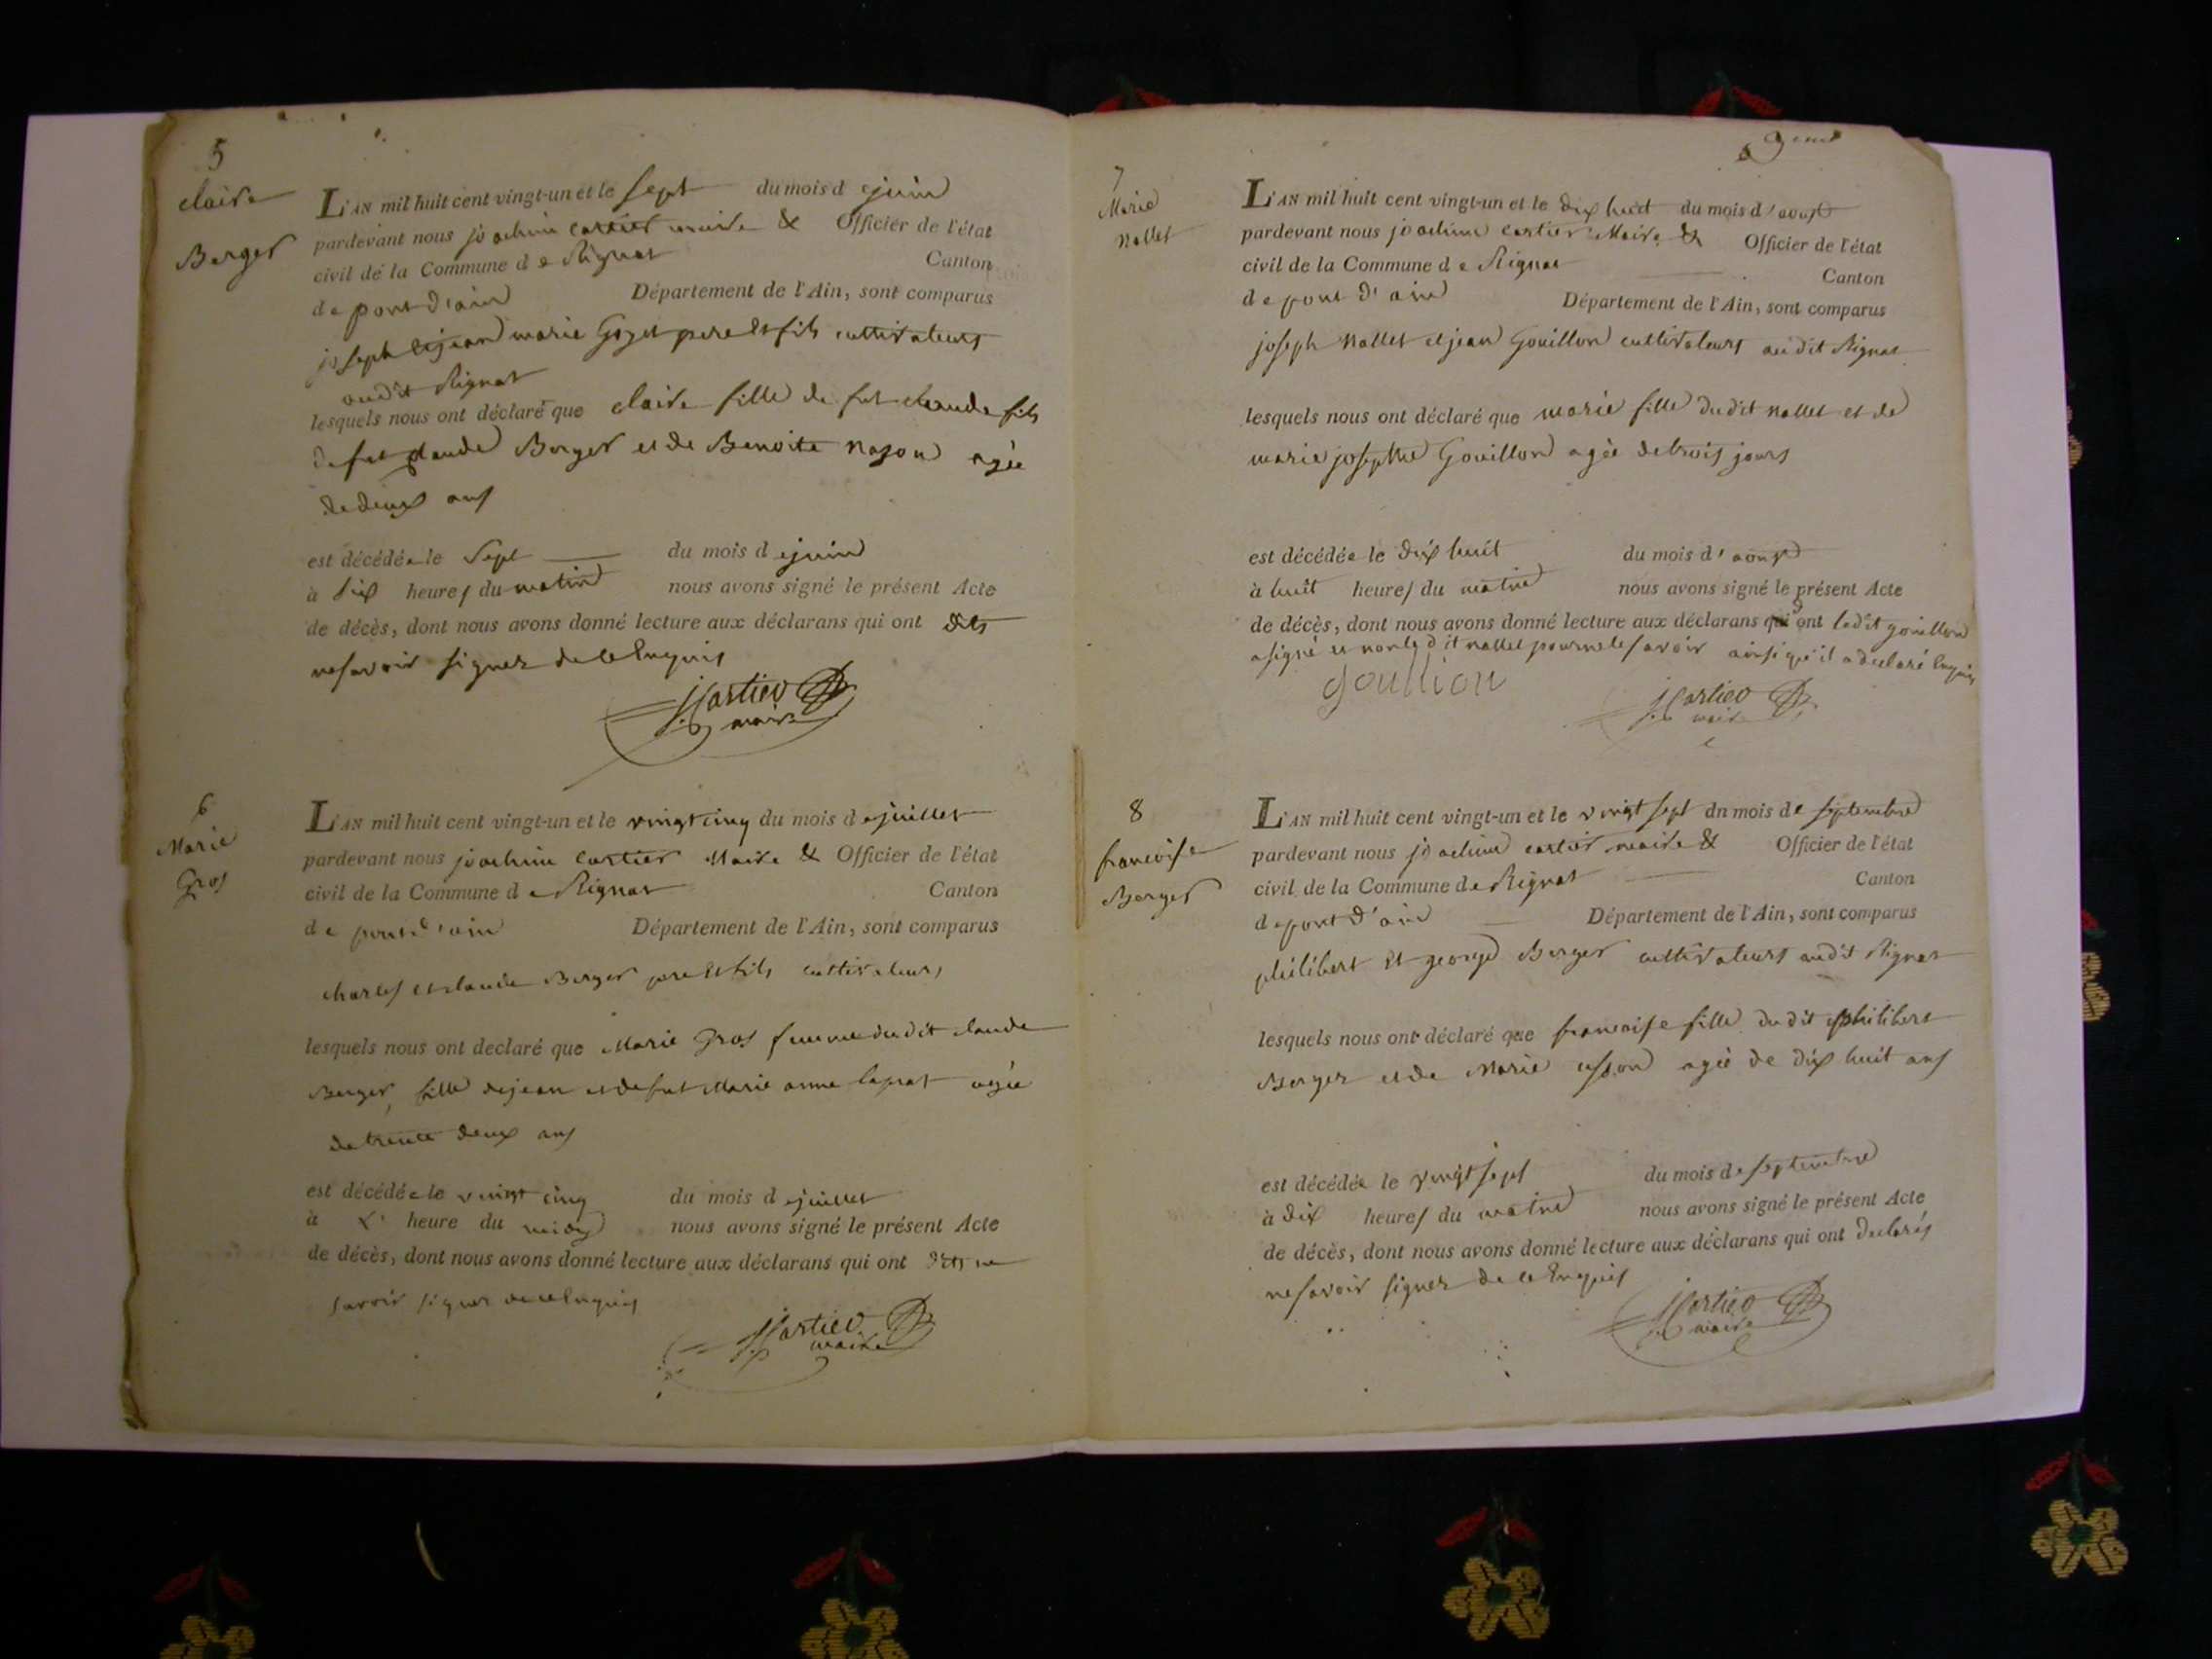 5
claire
Berger
L'AN mil huit cent vingt-un et le sept du mois d e juin
pardevant nous joachim cartier maire & Officier de l'état
civil de la Commune d e Rignat Canton
de pont d'ain Département de l'Ain, sont comparus
joseph et jean marie Goyet pere et fils cultivateurs
audit Rignat
lesquels nous ont déclaré que claire fille de fut claude fils
de fut claude Berger et de Benoite agée
de deux ans
est décédée le Sept du mois d e juin
à six heures du matin nous avons signé le présent Acte
de décès, dont nous avons donné lecture aux déclarans qui ont dits
ne savoir signer de ce Enquis
J Cartier
maire
6
Marie
Gros
L'AN mil huit cent vingt-un et le vingt cinq du mois d e juillet
pardevant nous joachim cartier Maire & Officier de l'état
civil de la Commune d e Rignat Canton
de pont d'ain Département de l'Ain, sont comparus
charles et claude Berger pere et fils cultivateurs
lesquels nous ont declaré que Marie Gros femme du dit claude
Berger, fille de jean et de fut Marie anne laprat agée
de trente deux ans
est décédée le vingt cinq du mois d e juillet
à heure du midy nous avons signé le présent Acte
de décès, dont nous avons donné lecture aux déclarans qui ont dits ne
savoir signer de ce Enquis
J Cartier
maire
7
Marie
Mallet
L'AN mil huit cent vingt-un et le dix huit du mois d'aoust
pardevant nous joachim cartier Maire & Officier de l'état
civil de la Commune d e Rignat Canton
de pont d'ain Département de l'Ain, sont comparus
joseph Mallet et jean Gouillon cultivateurs audit Rignat
lesquels nous ont déclaré que marie fille dudit Mallet et de
marie josephte Gouillon agée de trois jours
est décédée le dix huit du mois d'aoust
à huit heures du matin nous avons signé le présent Acte
de décès, dont nous avons donné lecture aux déclarans qui ont ledit gouillon
a signé et non ledit mallet pour ne le savoir ainsi qu'il a declaré Enquis
goullion
J Cartier
maire
8
francoise
Berger
L'AN mil huit cent vingt-un et le vingt sept du mois de septembre
pardevant nous joachim cartier maire & Officier de l'état
civil de la Commune de Rignat Canton
de pont d'ain Département de l'Ain, sont comparus
philibert Et george Berger cultivateurs audit Rignat
lesquels nous ont déclaré que francoise fille du dit philibert
Berger et de Marie agée de dix huit ans
est décédée le vingt sept du mois de septembre
à dix heures du matin nous avons signé le présent Acte
de décès, dont nous avons donné lecture aux déclarans qui ont declarés
ne savoir signer de ce Enquis
J Cartier
maire